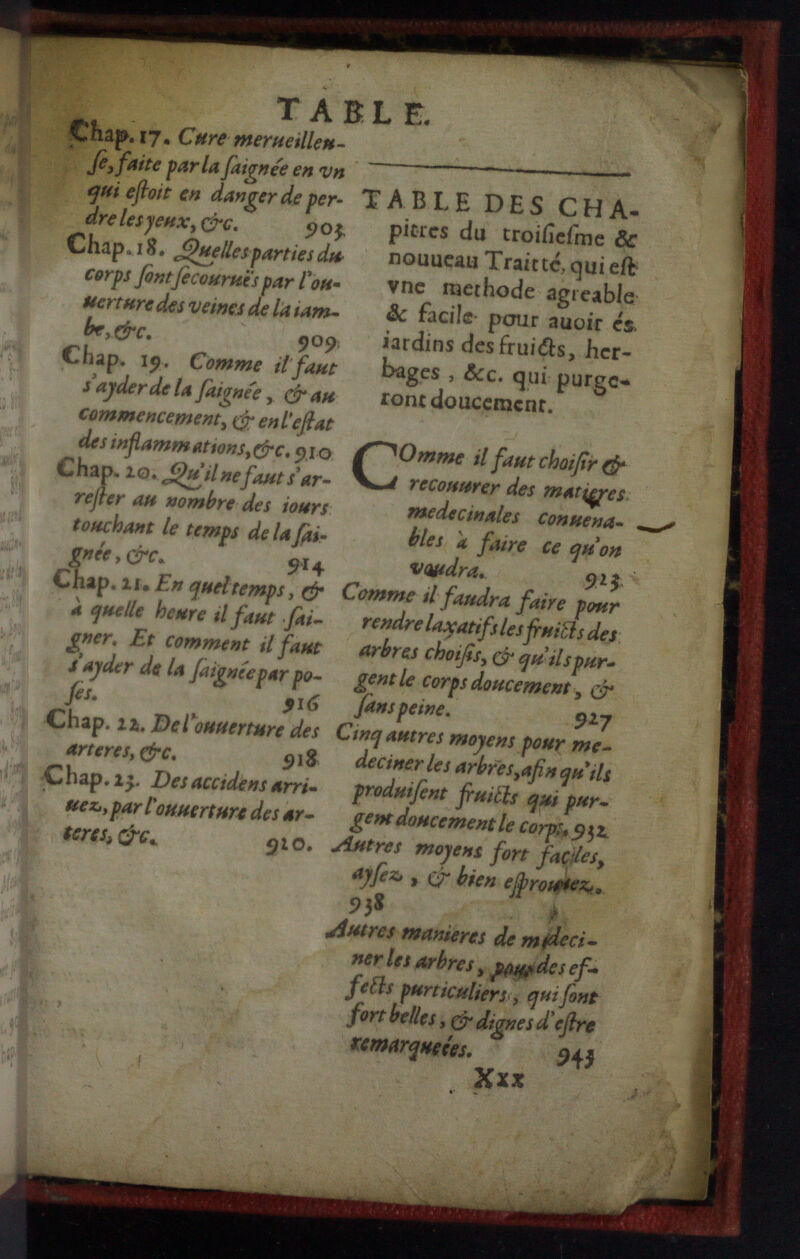 TABLE.
Chap. 17. Cure merueilleu-
ſe, faite par la ſaignée en vn
qui eſtoit en danger de per-
dre les yeux, &c. 903.
Chap. 18. Quelles parties du
corps ſont ſecouruës par l'ou-
uerture des veines de la iam-
be, &c. 909
Chap. 19. Comme il faut
s'ayder de la ſaignée, & au
commencement, & en l'eſtat
des inflammations, &c. 910
Chap. 20. Qu'il ne faut s'ar-
reſter au nombre des iours
touchant le temps de la ſai-
gnée, &c. 914
Chap. 21. En quel temps, &
à quelle heure il faut ſai-
gner. Et comment il faut
s'ayder de la ſaignée par po-
ſes. 916
Chap. 22. De l'ouuerture des
arteres, &c. 918
Chap. 23. Des accidens arri-
uez, par l'ouuerture des ar-
teres, &c. 920.
TABLE DES CHA-
pitres du troiſieſme &
nouueau Traitté, qui eſt
vne methode agreable
& facile pour auoir és
iardins des fruicts, her-
bages, &c. qui purge-
ront doucement.
COmme il faut choiſir &
recouurer des matieres
medecinales conuena-
bles à faire ce qu'on
voudra. 923
Comme il faudra faire pour
rendre laxatifs les fruicts des
arbres choiſis, & qu'ils pur-
gent le corps doucement, &
ſans peine. 927
Cinq autres moyens pour me-
deciner les arbres, afin qu'ils
produiſent fruicts qui pur-
gent doucement le corps. 932
Autres moyens fort faciles,
ayſez, & bien eſprouuez.
938
Autres manieres de medeci-
ner les arbres, pour des ef-
fects particuliers, qui ſont
fort belles, & dignes d'eſtre
remarquees. 943
Xxx